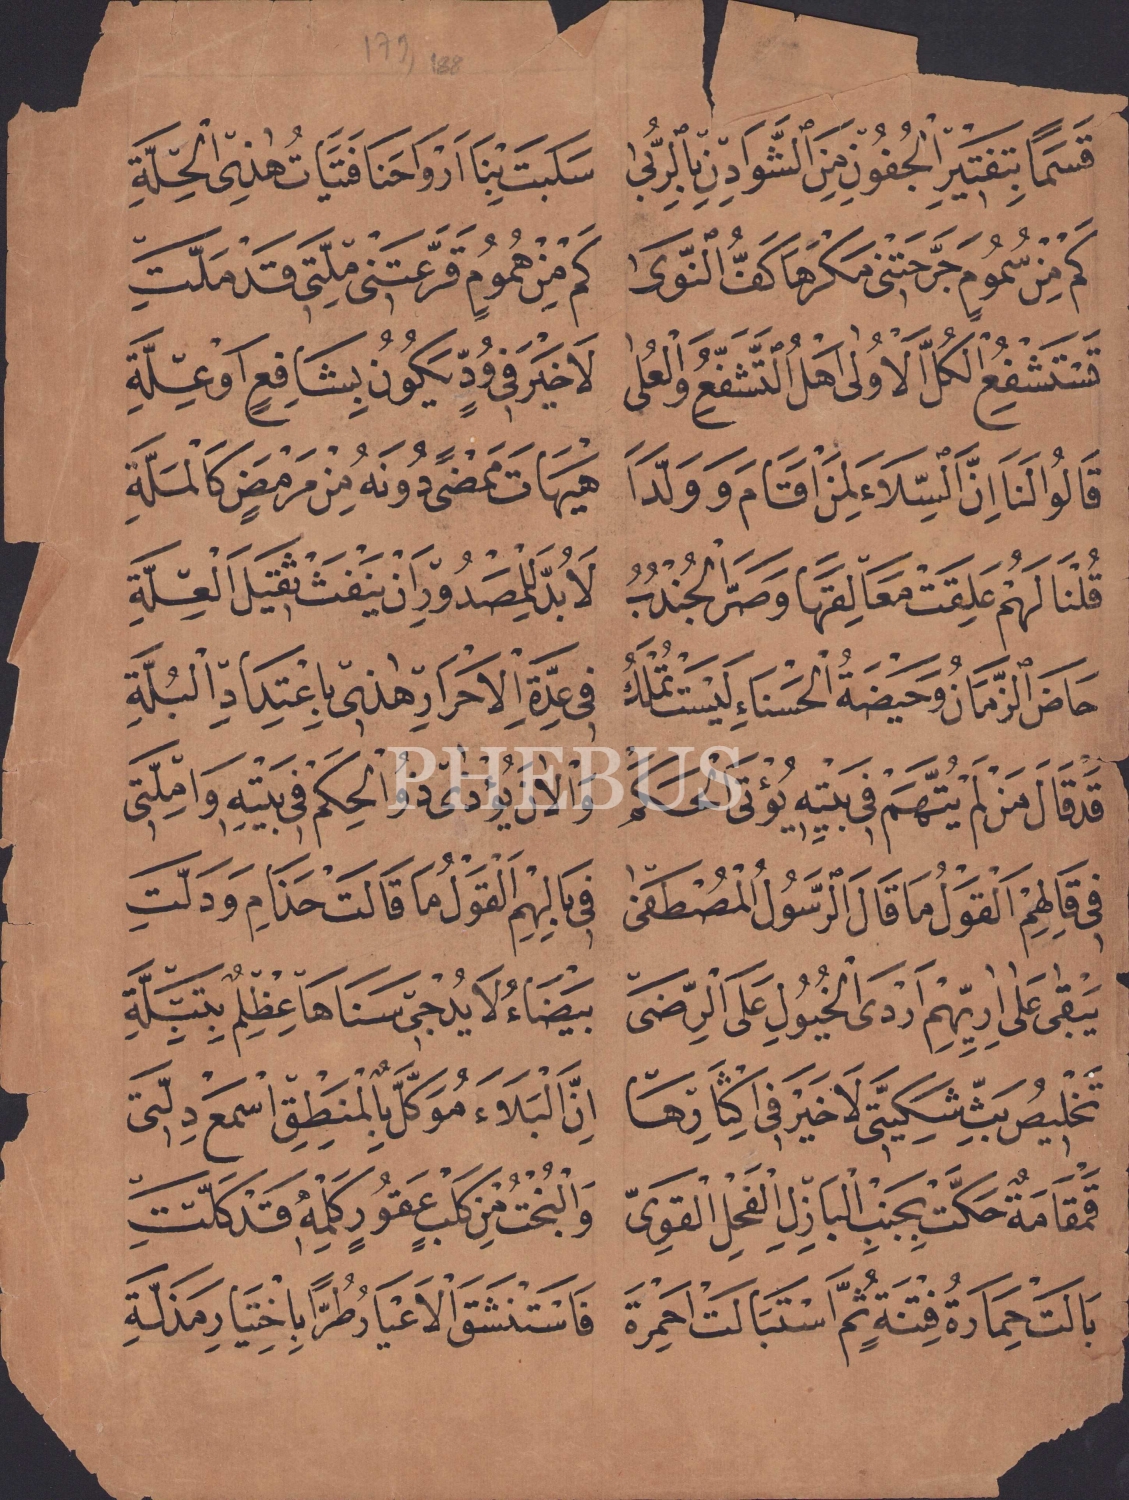 179 188
قَسَمًا بِتَفْتِيرِ الْجُفُوْنِ مِنَ الشَّوَادِنِ بِالرُّبٰى سَكَبَتْ بِنَا اَرْوَاحَنَا فَتَيَاتُ هٰذِى الْحِلَّةِ
كَمْ مِنْ سُمُومٍ جَرَّحَتْنِى مَكْرُهَا كَفُّ النَّوٰى كَمْ مِنْ هُمُومٍ قَرَّعَتْنِى مِلَّتِى قَدْ مَلَّتِ
تَسْتَشْفِعُ الْكُلَّ الْاُولٰى اَهْلُ التَّشَفُّعِ وَالْعُلٰى لَا خَيْرَ فِى وُدٍّ يَكُونُ بِشَافِعٍ اَوْ عِلَّةِ
قَالُوا لَنَا اِنَّ السِّلَاءَ لِمَنْ اَقَامَ وَوَلَّدَا هَيْهَاتَ مَمْضًى دُونَهُ مِنْ مَرْمَضٍ كَالْمَلَّةِ
قُلْنَا لَهُمْ عَلِقَتْ مَعَالِقَهَا وَصَرَّ الْجُنْدُبُ لَا بُدَّ لِلْمَصْدُوْرِ اَنْ يَنْفَثْ ثَقِيلَ الْعِلَّةِ
حَاضَ الزَّمَانُ وَحَيْضَةُ الْحَسْنَاءِ لَيْسَتْ تُمْلَكُ فِى عِدَّةِ الْاَحْرَارِ هٰذِى بِاعْتِدَادِ الْبُلَّةِ
قَدْ قَالَ مَنْ لَمْ يُتَّهَمْ فِى بَيْتِهِ يُؤْتَى الْحَكَمْ وَالْاٰنَ يُؤْذٰى ذُوْ الْحِكَمْ فِى بَيْتِهِ وَا مِلَّتِى
فِى قَالِهِمْ اَلْقَوْلُ مَا قَالَ الرَّسُولُ الْمُصْطَفٰى فِى بَالِهِمْ اَلْقَوْلُ مَا قَالَتْ حَذَامِ وَدَلَّتِ
يَبْقٰى عَلٰى اٰرِيِّهِمْ اَرْدَى الْخُيُولِ عَلَى الرِّضَى بَيْضَاءُ لَا يُدْجِى سَنَاهَا عِظْلِمٌ بِتَبَلَّةِ
تَخْلِيصُ بَثِّ شَكِيَّتِى لَا خَيْرَ فِى اِكْثَارِهَا اِنَّ الْبَلَاءَ مُوَكَّلٌ بِالْمَنْطِقِ اسْمَعْ دِلَّتِى
قَمْقَامَةٌ حَكَّتْ بِجَنْبِ الْبَازِلِ الْفَحْلِ الْقَوِىّ وَالْبُخْتُ مِنْ كَلْبٍ عَقُورٍ كَلْمُهُ قَدْ كَلَّتِ
بَالَتْ حِمَارَةُ فِتْنَةٍ ثُمَّ اسْتَبَالَتْ اَحْمِرَةَ فَاسْتَنْشَقَ الْاَعْيَارُ طُرًّا بِاخْتِيَارِ مَذَلَّةِ
PHEBUS